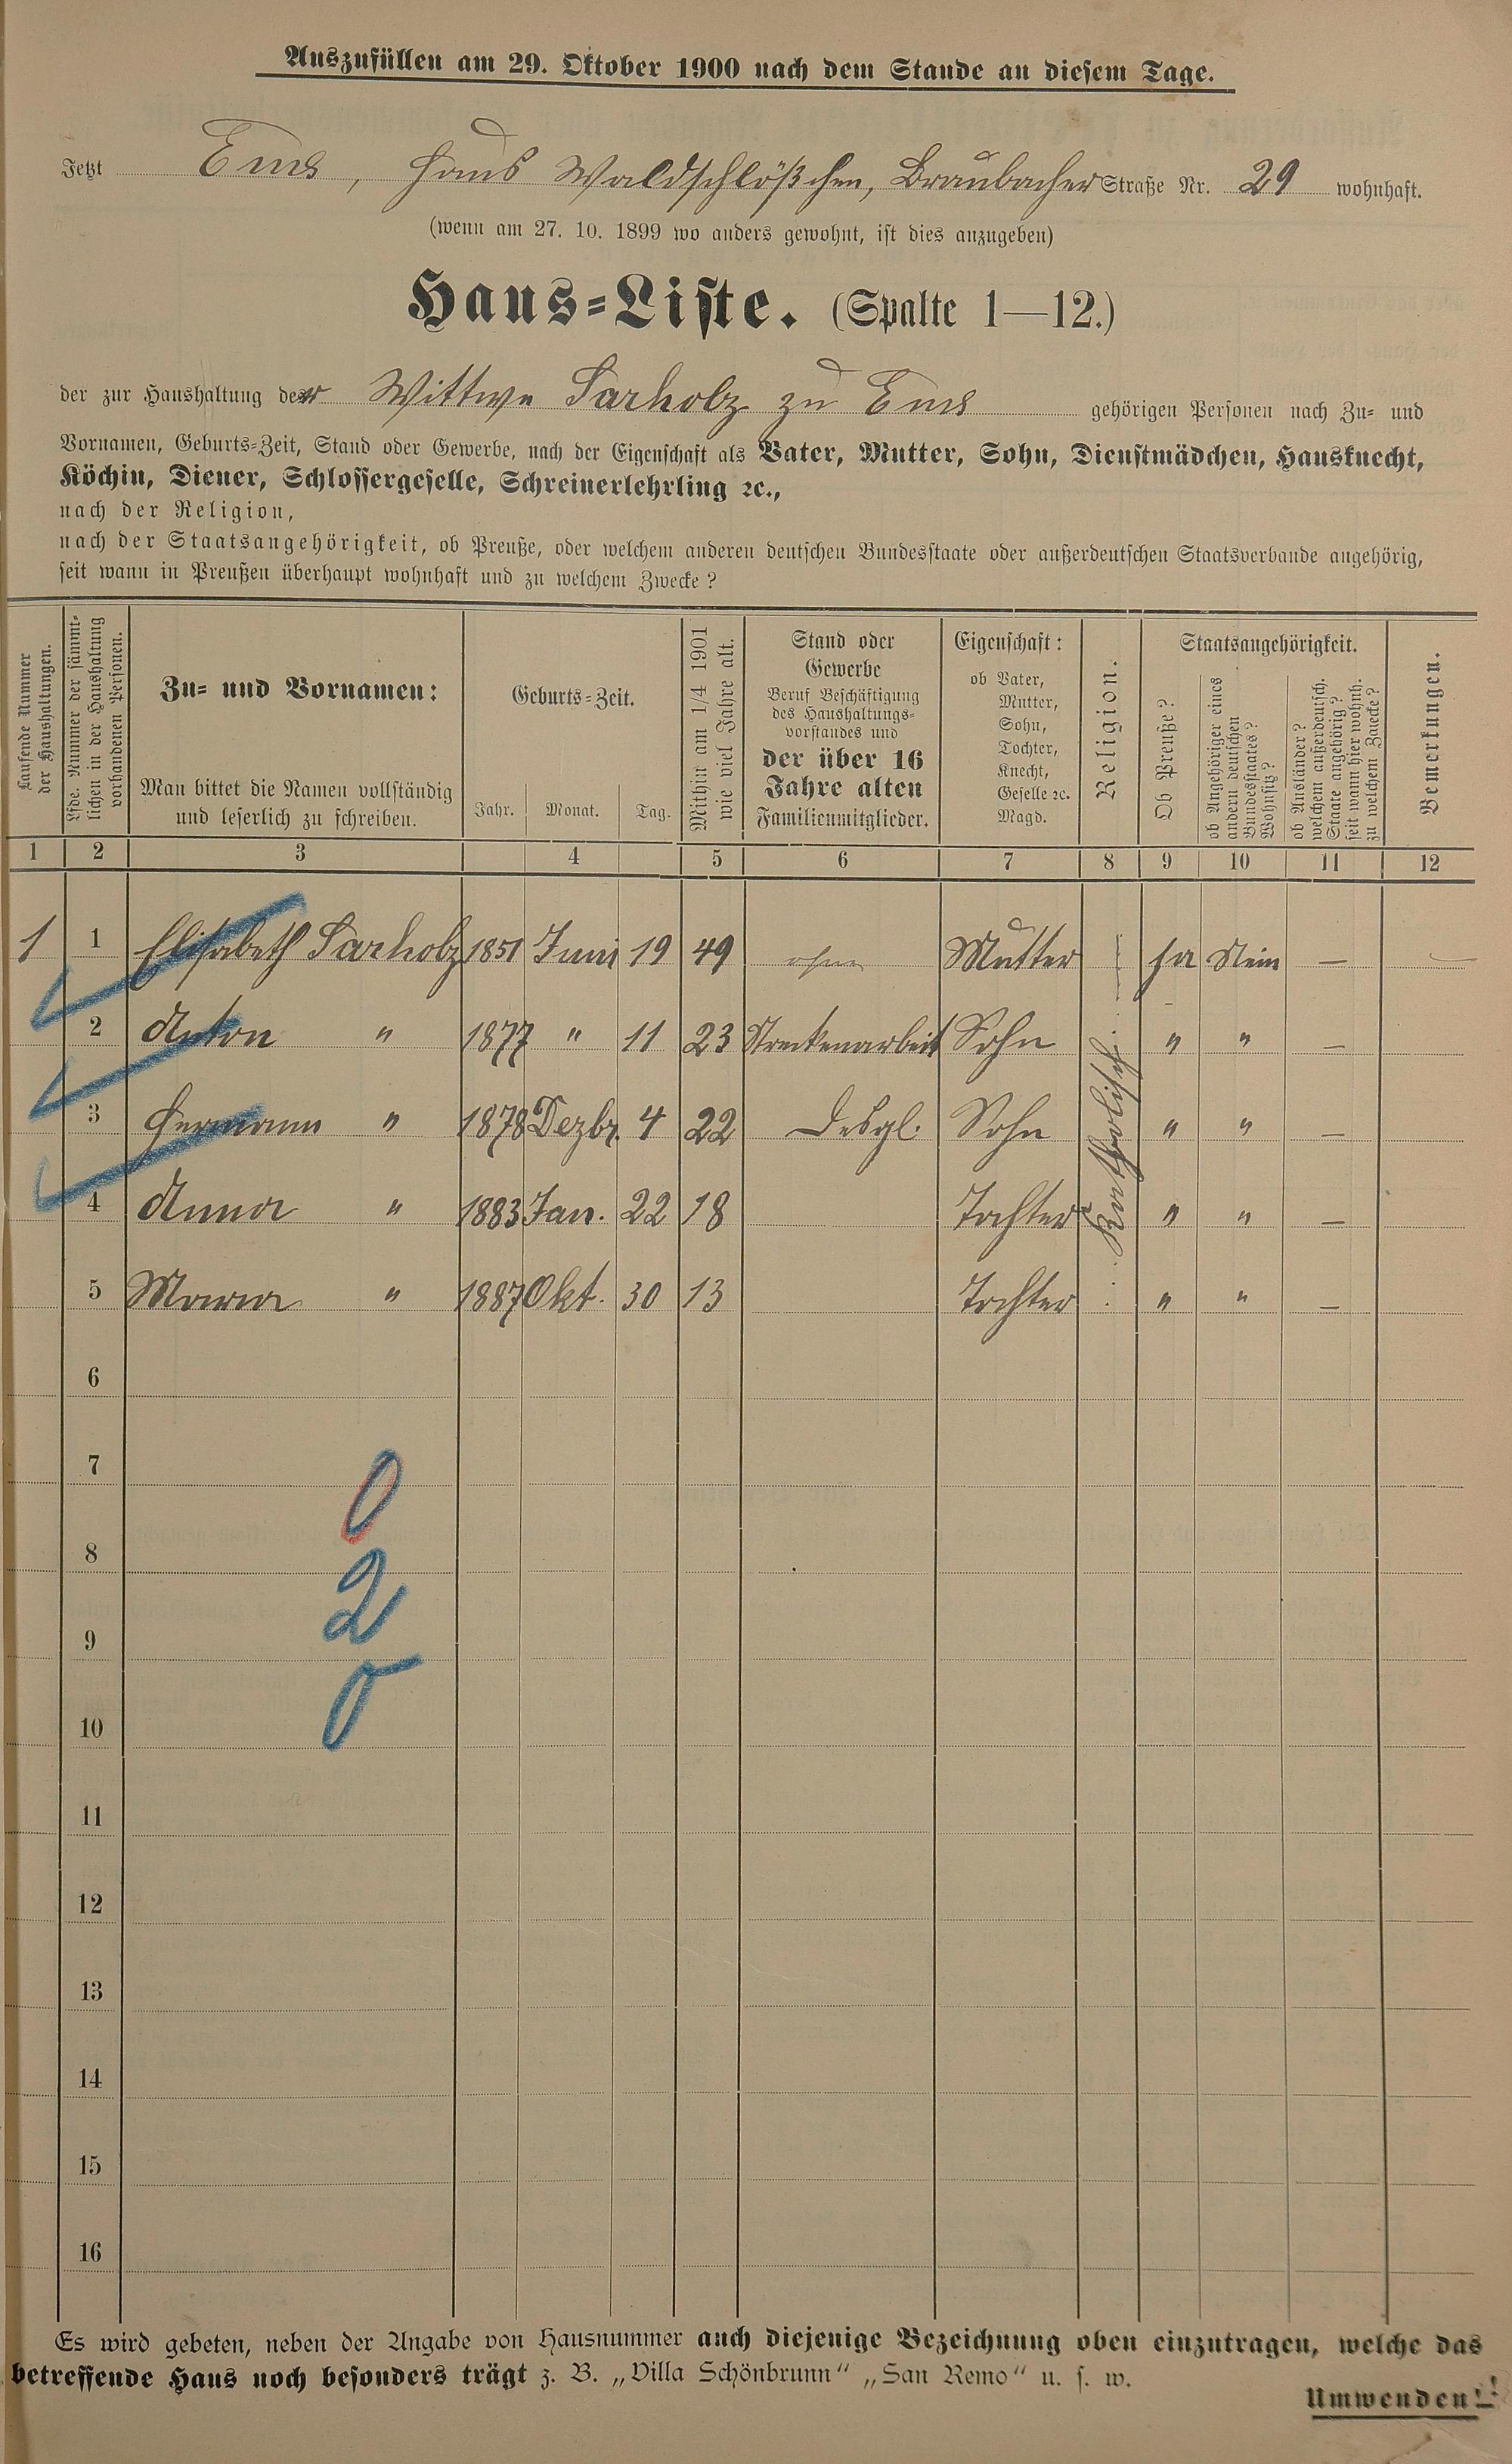 Auszufüllen am 29. Oktober 1900 nach dem Stande an diesem Tage.
Jetzt Ems, Haus Waldschlößchen, Braubacher Straße Nr. 29 wohnhaft.
(wenn am 27. 10. 1899 wo anders gewohnt, ist dies anzugeben)
Haus-Liste. (Spalte 1—12.)
der zur Haushaltung der Wittwe Sarholz zu Ems gehörigen Personen nach Zu- und
Vornamen, Geburts-Zeit, Stand oder Gewerbe, nach der Eigenschaft als Vater, Mutter, Sohn, Dienstmädchen, Hausknecht,
Köchin, Diener, Schlossergeselle, Schreinerlehrling ꝛc.,
nach der Religion,
nach der Staatsangehörigkeit, ob Preuße, oder welchem anderen deutschen Bundesstaate oder außerdeutschen Staatsverbande angehörig,
seit wann in Preußen überhaupt wohnhaft und zu welchem Zwecke?
Laufende Nummer
der Haushaltungen.
Lfde. Nummer der sämmt-
lichen in der Haushaltung
vorhandenen Personen.
Zu- und Vornamen:
Man bittet die Namen vollständig
und leserlich zu schreiben.
Geburts-Zeit.
Jahr. Monat. Tag.
Mithin am 1/4 1901
wie viel Jahre alt.
Stand oder
Gewerbe
Beruf Beschäftigung
des Haushaltungs-
vorstandes und
der über 16
Jahre alten
Familienmitglieder.
Eigenschaft:
ob Vater,
Mutter,
Sohn,
Tochter,
Knecht,
Geselle ꝛc.
Magd.
Religion.
Staatsangehörigkeit.
Ob Preuße?
ob Angehöriger eines
andern deutschen
Bundesstaates?
Wohnsitz?
ob Ausländer?
welchem außerdeutsch.
Staate angehörig?
seit wann hier wohnh.
zu welchem Zwecke?
Bemerkungen.
1 2 3 4 5 6 7 8 9 10 11 12
1 1 Elisabeth Sarholz 1851 Juni 19 49 ohne Mutter ja Nein —
2 Anton " 1877 " 11 23 Streckenarbeit Sohn " " —
3 Hermann " 1878 Dezbr. 4 22 Desgl. Sohn " " —
4 Anna " 1883 Jan. 22 18 Tochter " " —
5 Maria " 1887 Okt. 30 13 Tochter " " —
Katholisch
6
7
0
8
2
9
0
10
11
12
13
14
15
16
Es wird gebeten, neben der Angabe von Hausnummer auch diejenige Bezeichnung oben einzutragen, welche das
betreffende Haus noch besonders trägt z. B. „Villa Schönbrunn" „San Remo" u. s. w.
Umwenden!